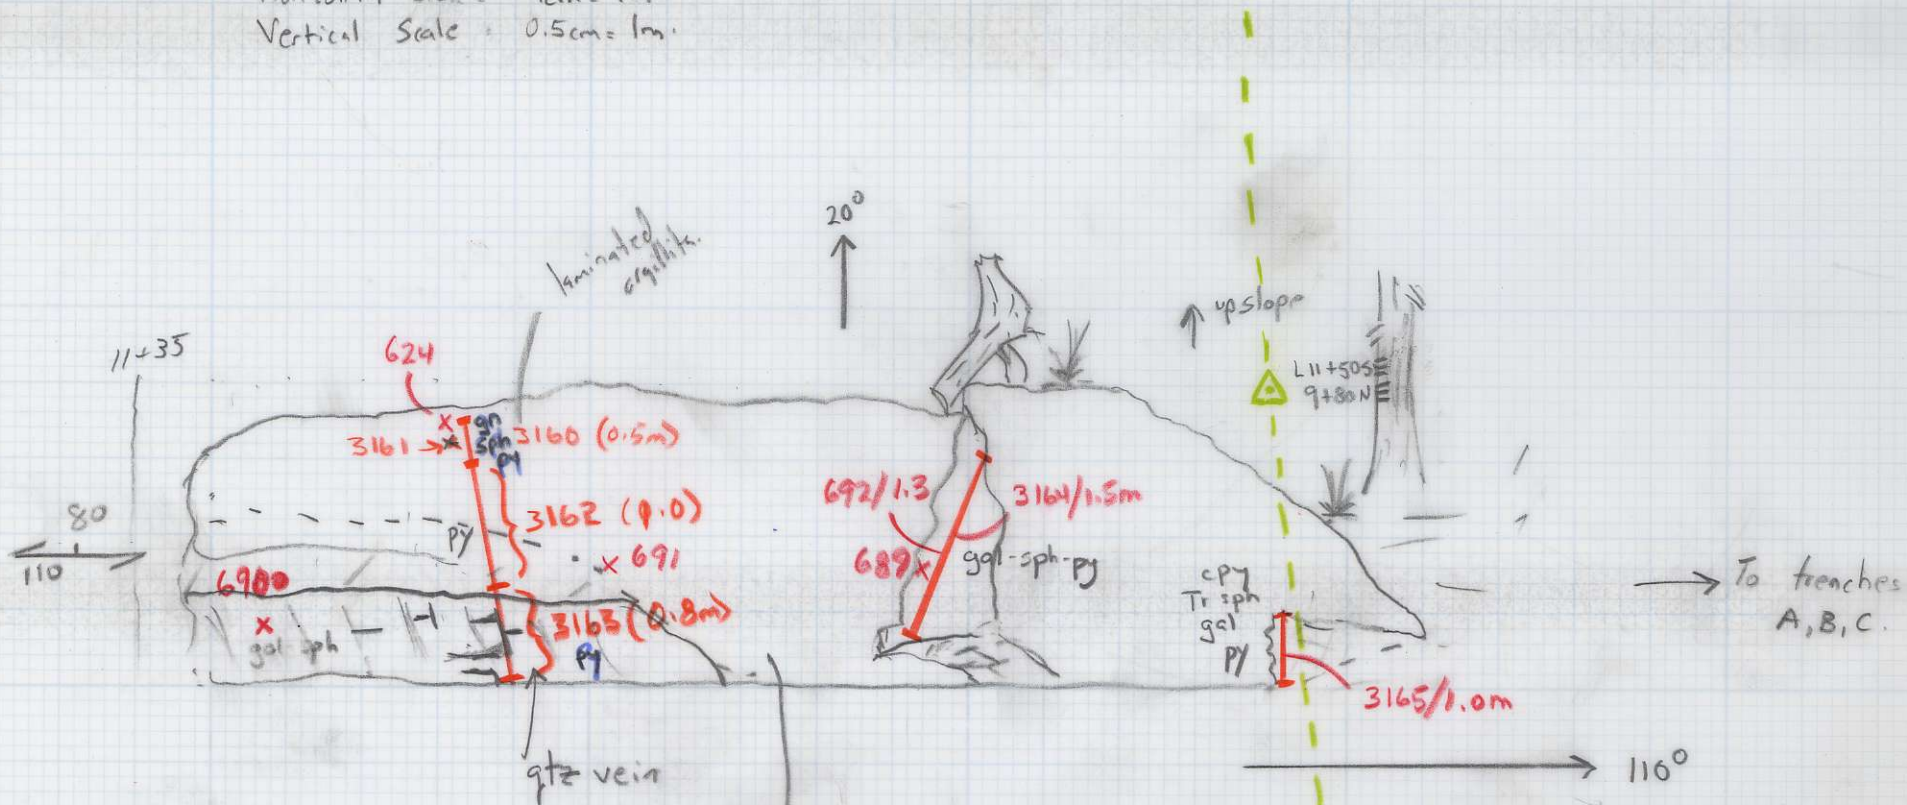 Vertical Scale : 0.5cm = 1m.
20°
laminated
argillite.
upslope
11+35
624
L11+50S
9+80N
gn
sph
py
3161
3160 (0.5m)
80
110
py
3162 (1.0)
691
692/1.3
3164/1.5m
689
gal-sph-py
gal sph
3163 (0.8m)
py
cpy
Tr sph
gal
py
To trenches
A, B, C.
3165/1.0m
qtz vein
110°